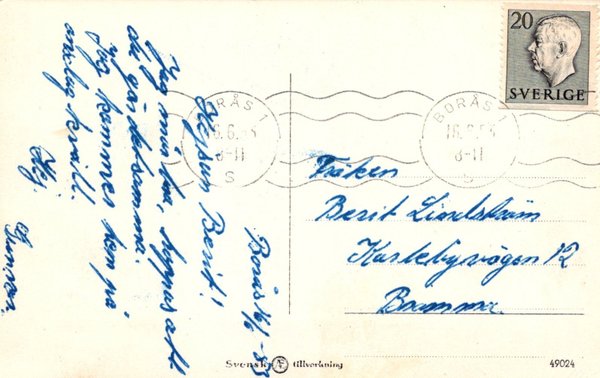 Borås 16/6 -53
Hejsan Berit!
Jag mår bra, hoppas att
du gör detsamma.
Jag kommer hem på
kväll.
Hej.
Gunvor.
BORÅS 1
8-11
S
BORÅS 1
16.6.53
8-11
S
20
SVERIGE
Fröken
Berit Lindström
Karlebyvägen 12
Bromma.
Svensk Æ tillverkning
49024